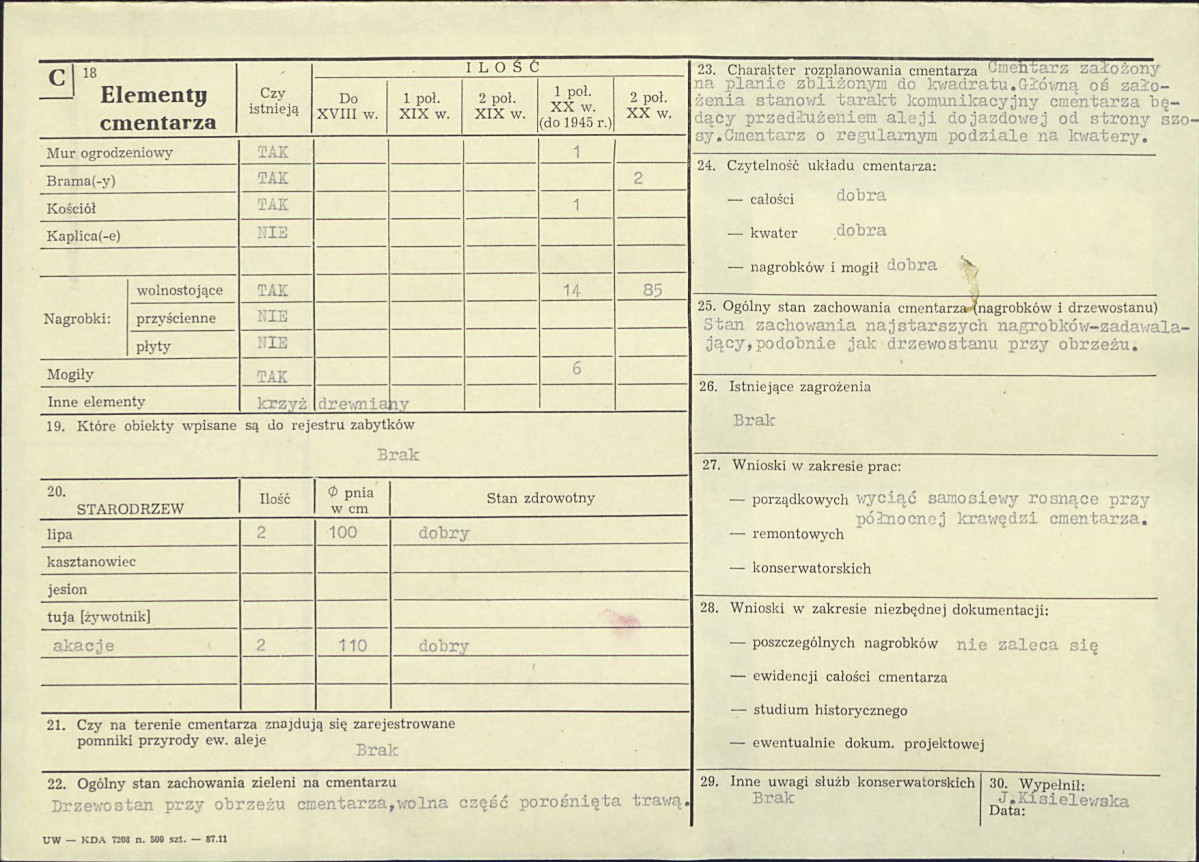 C 18
Elementy cmentarza
Czy istnieją
ILOŚĆ
Do XVIII w.
1 poł. XIX w.
2 poł. XIX w.
1 poł. XX w. (do 1945 r.)
2 poł. XX w.
Mur ogrodzeniowy TAK 1
Brama(-y) TAK 2
Kościół TAK 1
Kaplica(-e) NIE
Nagrobki:
wolnostojące TAK 14 85
przyścienne NIE
płyty NIE
Mogiły TAK 6
Inne elementy krzyż drewniany
19. Które obiekty wpisane są do rejestru zabytków
Brak
20. STARODRZEW
Ilość
Ø pnia w cm
Stan zdrowotny
lipa 2 100 dobry
kasztanowiec
jesion
tuja [żywotnik]
akacje 2 110 dobry
21. Czy na terenie cmentarza znajdują się zarejestrowane
pomniki przyrody ew. aleje Brak
22. Ogólny stan zachowania zieleni na cmentarzu
Drzewostan przy obrzeżu cmentarza,wolna część porośnięta trawą.
UW — KDA 7208 n. 500 szt. — 87.11
23. Charakter rozplanowania cmentarza Cmentarz założony
na planie zbliżonym do kwadratu.Główną oś zało-
żenia stanowi tarakt komunikacyjny cmentarza bę-
dący przedłużeniem aleji dojazdowej od strony szo-
sy.Cmentarz o regularnym podziale na kwatery.
24. Czytelność układu cmentarza:
— całości dobra
— kwater dobra
— nagrobków i mogił dobra
25. Ogólny stan zachowania cmentarza (nagrobków i drzewostanu)
Stan zachowania najstarszych nagrobków-zadawala-
jący,podobnie jak drzewostanu przy obrzeżu.
26. Istniejące zagrożenia
Brak
27. Wnioski w zakresie prac:
— porządkowych wyciąć samosiewy rosnące przy
północnej krawędzi cmentarza.
— remontowych
— konserwatorskich
28. Wnioski w zakresie niezbędnej dokumentacji:
— poszczególnych nagrobków nie zaleca się
— ewidencji całości cmentarza
— studium historycznego
— ewentualnie dokum. projektowej
29. Inne uwagi służb konserwatorskich
Brak
30. Wypełnił:
J.Kisielewska
Data: